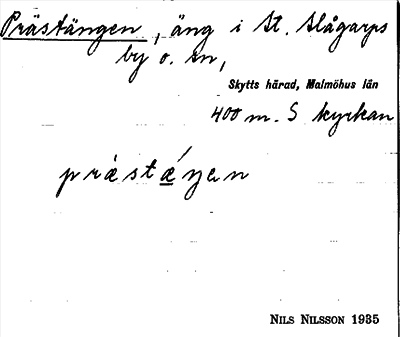 Prästängen, äng i St. Slågarps
by o. sn,
Skytts härad, Malmöhus län
400 m. S kyrkan
præstæŋen
NILS NILSSON 1935